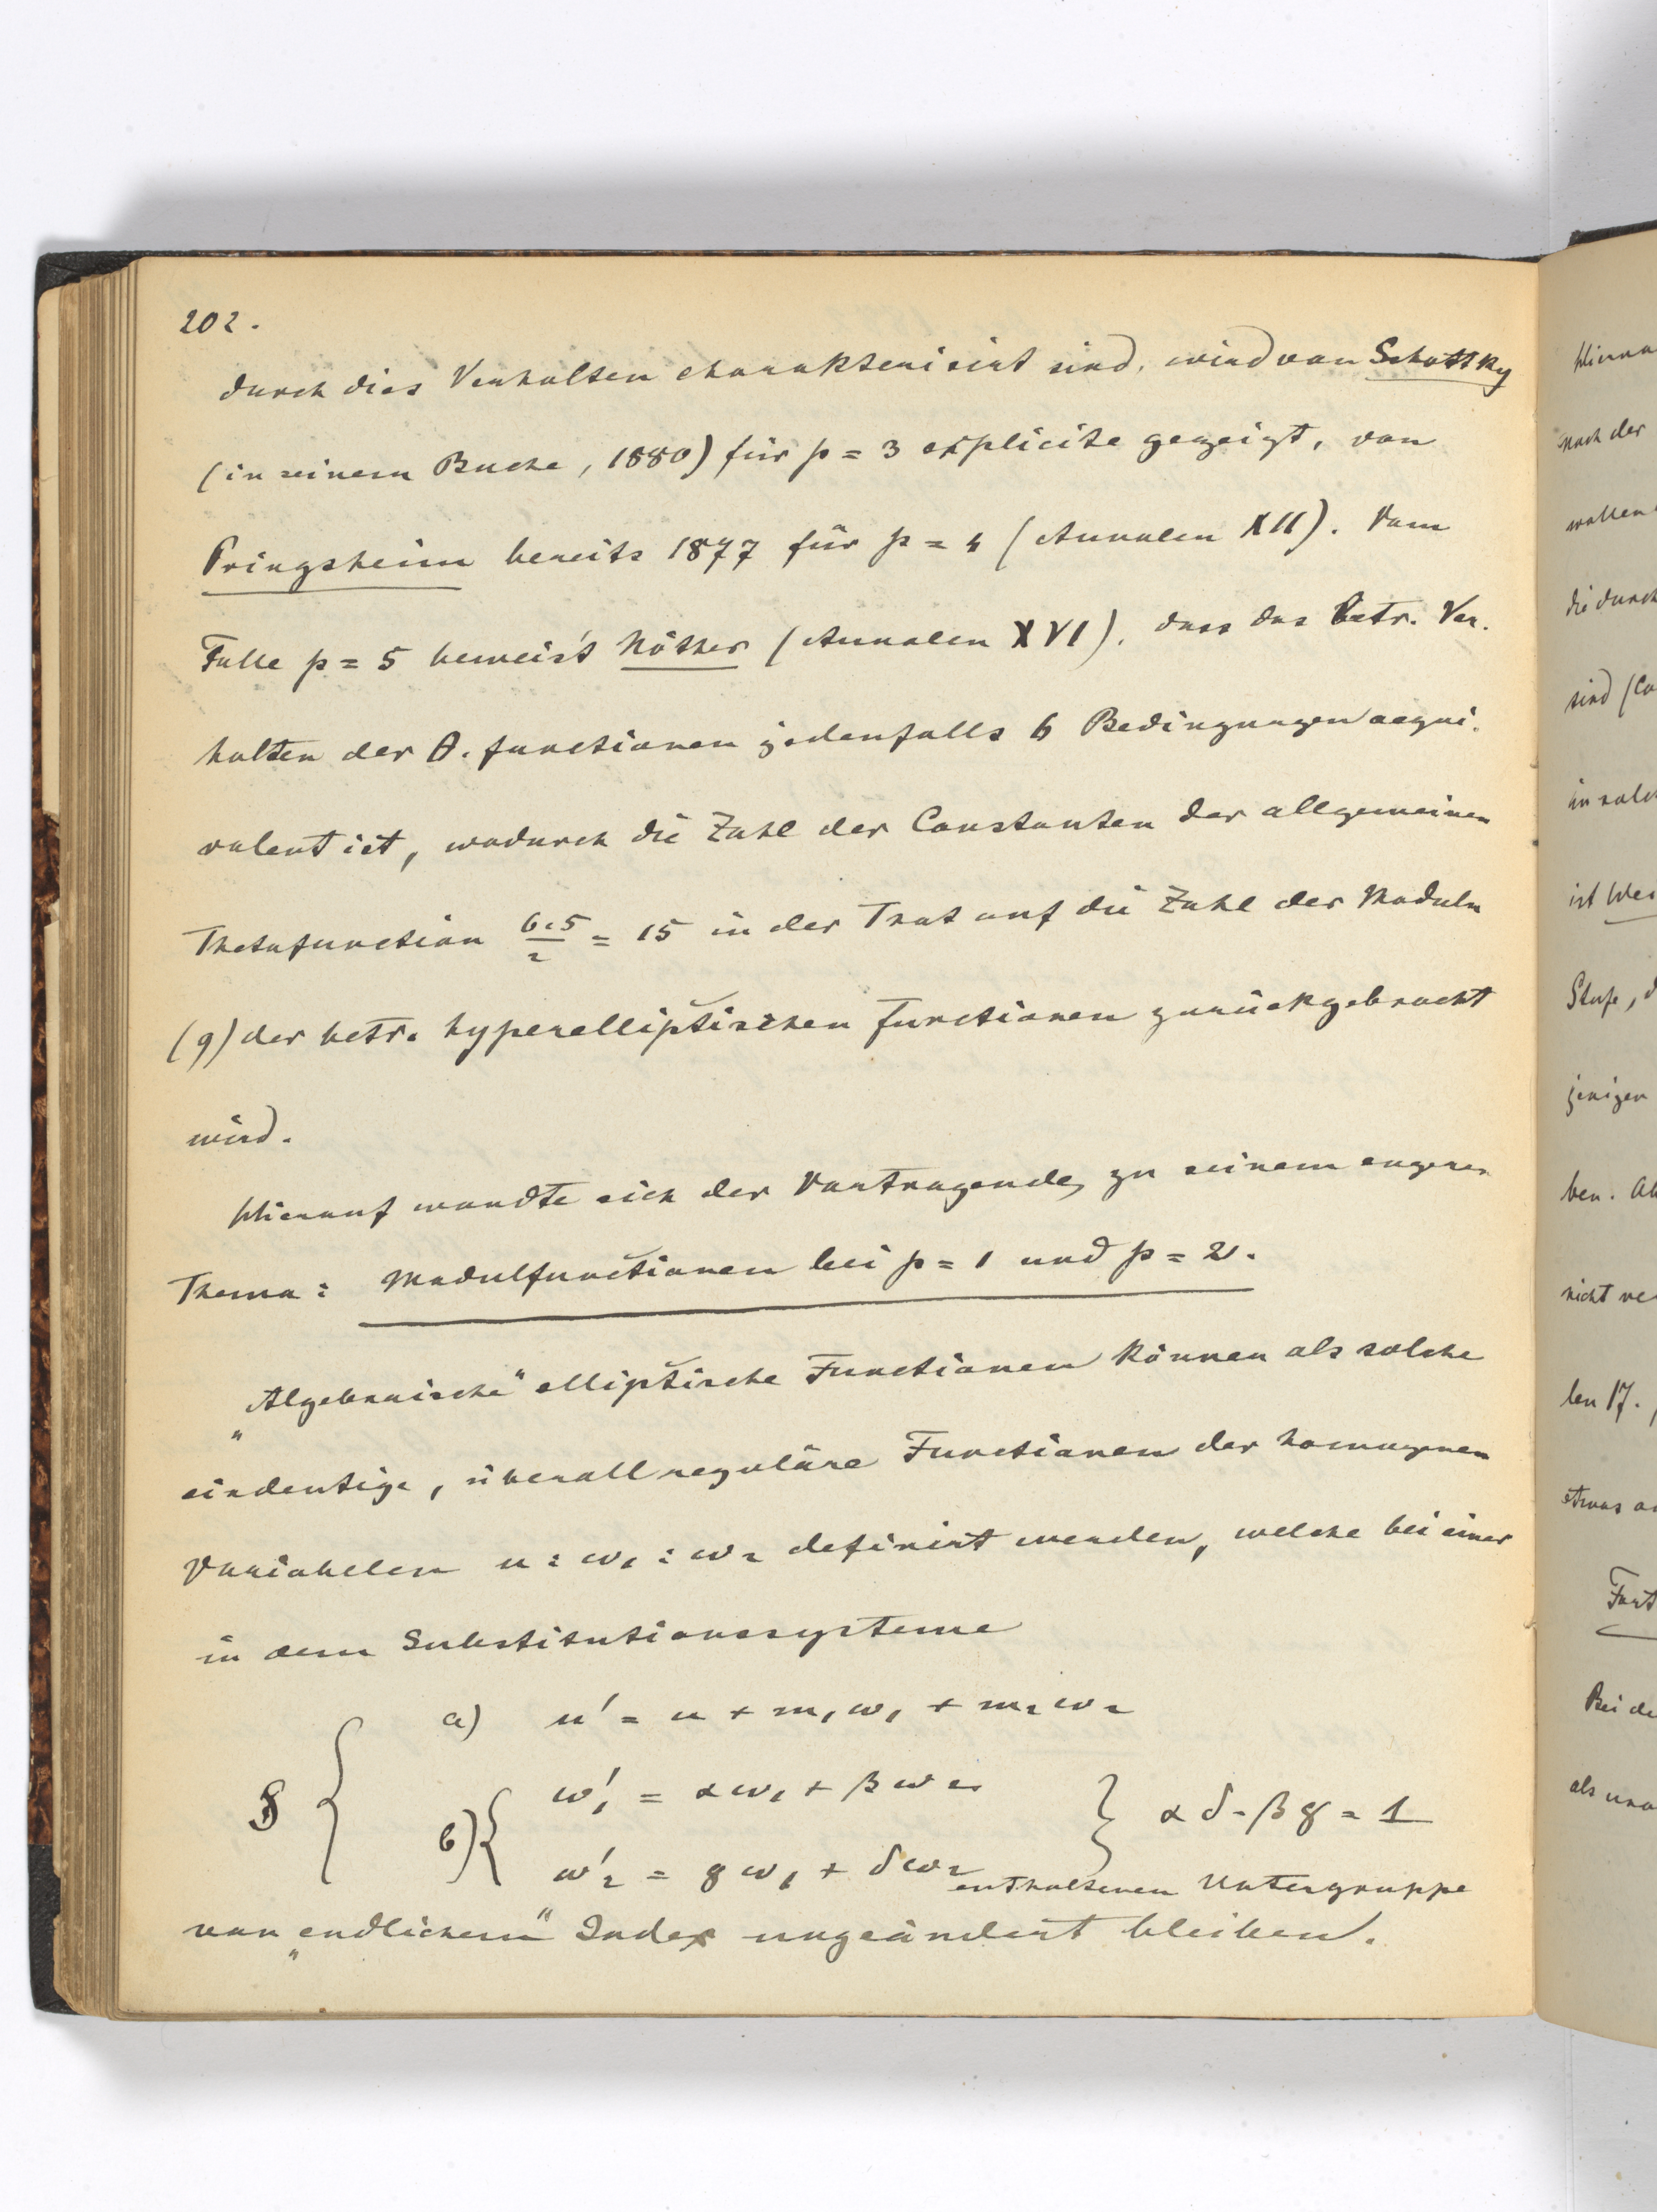 202.
durch dies Verhalten charakterisirt sind, wird von Schottky
(in seinem Buche, 1880) für p = 3 explicite gezeigt, von
Pringsheim bereits 1877 für p = 4 (Annalen XII). Vom
Falle p = 5 beweist Nöther (Annalen XVI), dass das betr. Ver-
halten der θ-functionen jedenfalls 6 Bedingungen aequi-
valent ist, wodurch die Zahl der Constanten der allgemeinen
Thetafunction 6.5/2 = 15 in der That auf die Zahl der Moduln
(9) der betr. hyperelliptischen Functionen zurückgebracht
wird.
Hierauf wandte sich der Vortragende zu seinem engeren
Thema: Modulfunctionen bei p = 1 und p = 2.
„Algebraische“ elliptische Functionen können als solche
eindeutige, überall reguläre Functionen der homogenen
Variabelen u : ω₁ : ω₂ definirt werden, welche bei einer
in dem Substitutionssysteme
a) u' = u + m₁ω₁ + m₂ω₂
b) { ω₁' = αω₁ + βω₂
ω₂' = γω₁ + δω₂ } αδ - βγ = 1
enthaltenen Untergruppe
von „endlichem“ Index ungeändert bleiben.
Hierna
nach der
wollen
die durch
sind (Co
in solch
ist Wei
Stufe, d
jenigen
ben. Ab
nicht ve
len 17.
etwas a
Fort
Bei de
als una